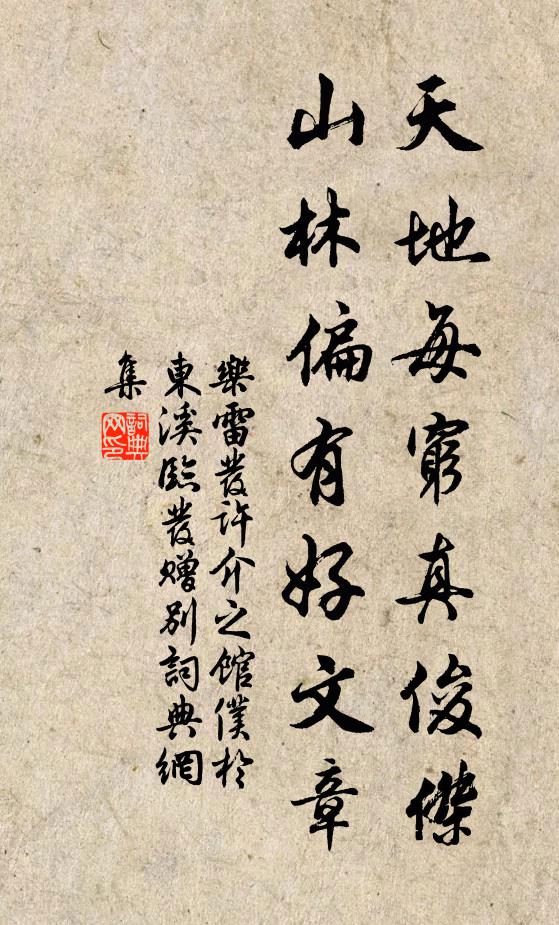 天地每窮真俊傑
山林偏有好文章
樂雷發許介之館僕於
東溪臨發贈別詞典網
集
詞典網印